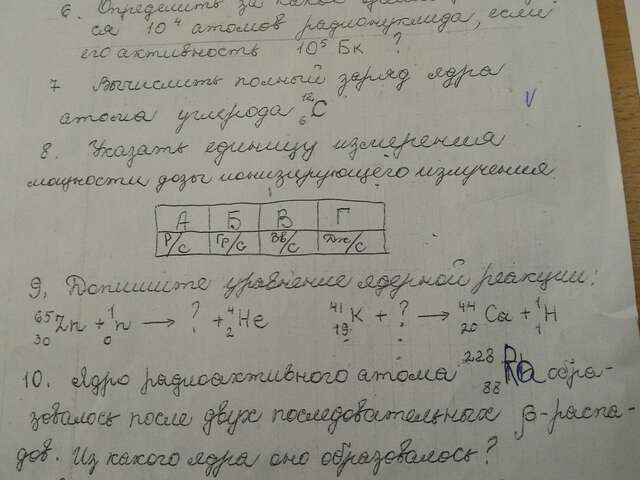 6. Определить за какое
ся 10⁴ атомов радионуклида, если
его активность 10⁵ Бк ?
7 Вычислить полный заряд ядра
атома углерода ¹²₆C
V
8. Указать единицу измерения
мощности дозы ионизирующего излучения.
А Б В Г
Р/с Гр/с Зв/с Дж/с
9, Допишите уравнение ядерной реакции:
⁶⁵₃₀Zn + ¹₀n → ? + ⁴₂He ⁴¹₁₉K + ? → ⁴⁴₂₀Ca + ¹₁H
10. Ядро радиоактивного атома ²²⁸₈₈Ra обра-
зовалось после двух последовательных β-распа-
дов. Из какого ядра оно образовалось?